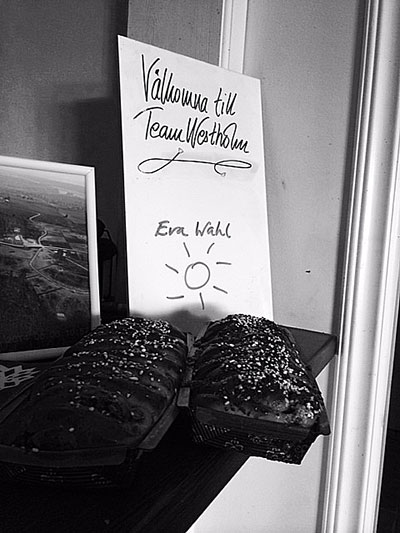 Välkomna till
Team Westholm
Eva Wahl